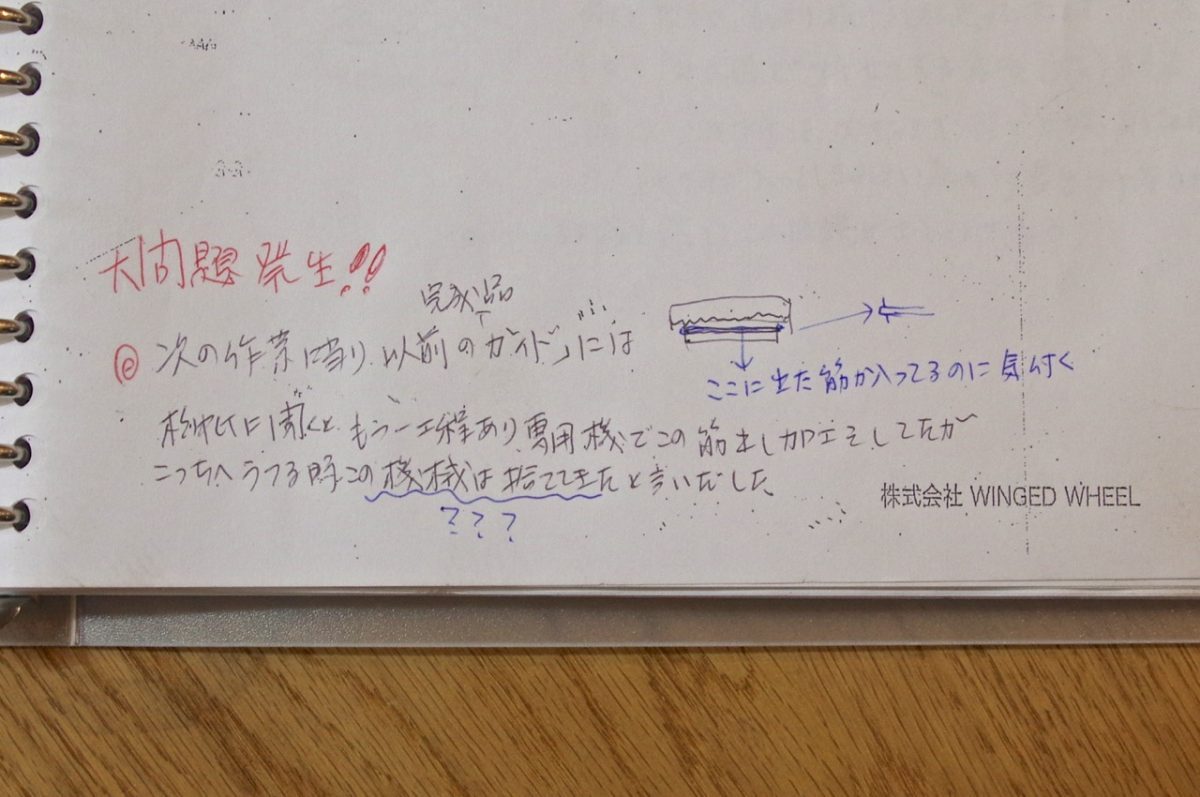 大問題発生!!
完成品
㋹ 次の作業に当り、以前の「ガイド」には
ここに出た筋が入ってるのに気付く
に聞くと、もう一工程あり、専用機でこの筋出し加工をしてたが
こっちへうつる時この機械は捨ててきたと言いだした
???
株式会社 WINGED WHEEL